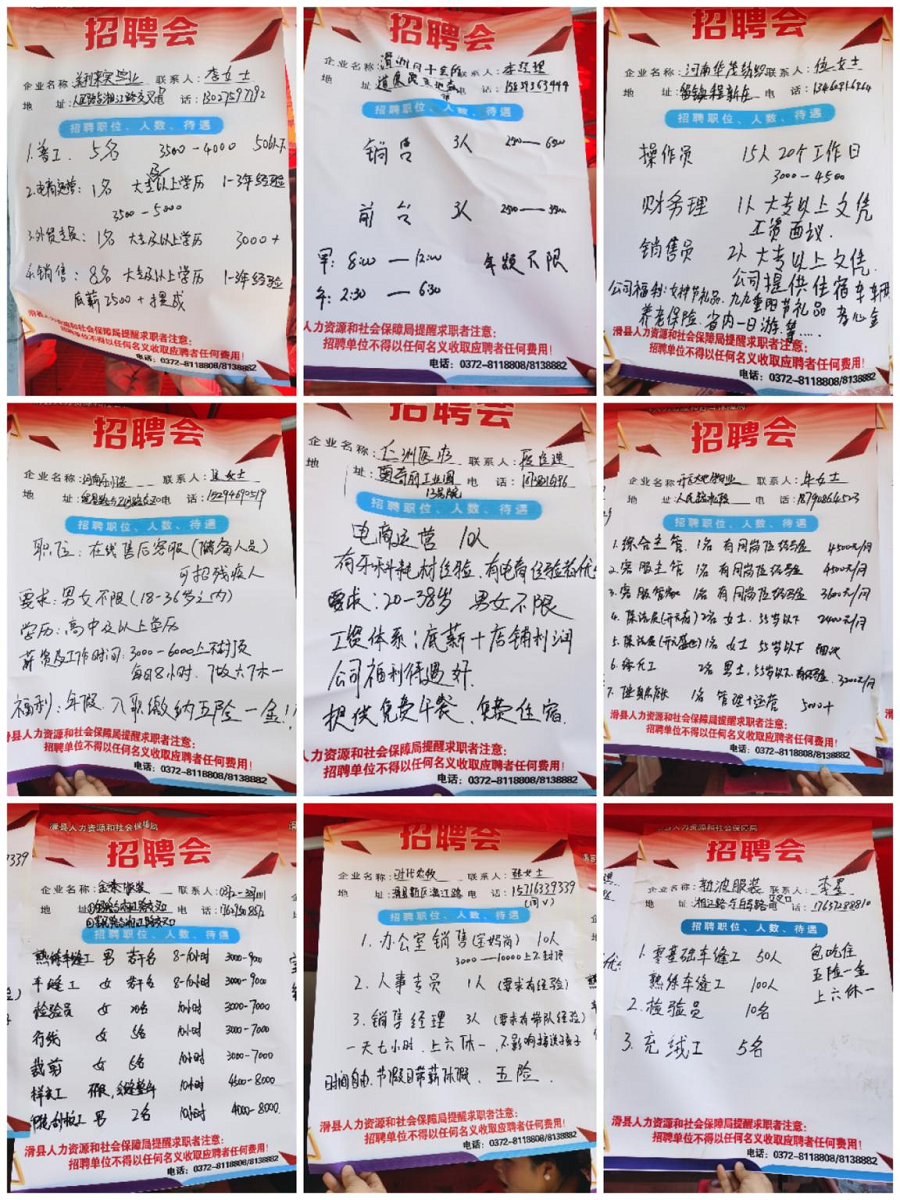 招聘会
企业名称: 联系人:李女士
地 址: 电 话:13027597792
招聘职位、人数、待遇
1.普工. 5名 3500-4000 50以下
2.电商运营: 1名 大专以上学历 1-3年经验
3500-5000
3.外贸专员: 1名 大专及以上学历 3000+
4.销售: 8名 大专及以上学历 1-3年经验
底薪2500+提成
滑县人力资源和社会保障局提醒求职者注意:
招聘单位不得以任何名义收取应聘者任何费用!
电话:0372-8118808/8138882
招聘会
企业名称: 联系人:李经理
地 址: 电话:
招聘职位、人数、待遇
销售 3人
前台 3人
早: 8:00 — 12:00 年龄不限
午: 2:30 — 6:30
滑县人力资源和社会保障局提醒求职者注意:
招聘单位不得以任何名义收取应聘者任何费用!
电话:0372-8118808/8138882
招聘会
企业名称:河南华茂纺织 联系人: 女士
地 址:留固镇程新庄 电话:
招聘职位、人数、待遇
操作员 15人 20个工作日
3000-4500
财务理 1人 大专以上文凭
工资面议.
销售员 2人 大专以上文凭.
公司提供住宿车
公司福利:女神节礼品. 九九重阳节礼品 孝心金
养老保险. 省内一日游. 等……
滑县人力资源和社会保障局提醒求职者注意:
招聘单位不得以任何名义收取应聘者任何费用!
电话:0372-8118808/8138882
招聘会
企业名称: 联系人: 女士
地 址: 电 话:15294690519
招聘职位、人数、待遇
职位: 在线售后客服(储备人员)
可招残疾人
要求:男女不限(18-36岁之内)
学历:高中及以上学历
薪资及工作时间:3000-6000上不封顶
每日8小时. 7做六休一
福利:年假. 入职缴纳五险一金!
滑县人力资源和社会保障局提醒求职者注意:
招聘单位不得以任何名义收取应聘者任何费用!
电话:0372-8118808/8138882
招聘会
企业名称:仁洲医疗 联系人:段经理
地 址: 工业园 电话:
13号院
招聘职位、人数、待遇
电商运营 10人
有牙科耗材经验. 有电商经验者优
要求:20-38岁 男女不限
工资体系:底薪+店铺利润
公司福利待遇好.
提供免费午餐、免费住宿.
人力资源和社会保障局提醒求职者注意:
招聘单位不得以任何名义收取应聘者任何费用!
电话:0372-8118808/8138882
招聘会
企业名称: 联系人:牛女士
地 址: 电 话:18790864503
招聘职位、人数、待遇
1.综合主管. 1名 有同岗位经验 4500元/月
2.客服主管 1名 有同岗位经验 4500元/月
3.客服管家 1名 有同岗位经验 3600元/月
4.保洁员 2名 女士. 55岁以下 2400元/月
5.保洁员 1名 女士 55岁以下 面议
6.综合工 2名 男士,55岁以下. 3200元/月
7. 1名 管理+运营 5000+
滑县人力资源和社会保障局提醒求职者注意:
招聘单位不得以任何名义收取应聘者任何费用!
电话:0372-8118808/8138882
滑县人力资源和社会保障局
招聘会
企业名称: 联系人:
地 址: 电 话:
招聘职位、人数、待遇
熟练车缝工 男 若干名 8-10小时 3000-9000
手缝工 女 若干名 8-10小时 3000-7000
检验员 女 10小时 3000-7000
女 5名 10小时 3000-7000
裁剪 女 6名 10小时 3000-7000
样衣工 10小时 4600-8000
男 2名 10小时 4000-8000.
滑县人力资源和社会保障局提醒求职者注意:
招聘单位不得以任何名义收取应聘者任何费用!
电话:0372-8118808/8138882
滑县人力资源和社会保障局
招聘会
企业名称: 联系人: 女士
地 址: 电 话:15716339339
(同V)
招聘职位、人数、待遇
1.办公室销售(宝妈岗) 10人
3000—10000上不封顶
2.人事专员 1人 (要求有经验)
3.销售经理 3人 (要求有带队经验)
一天七小时. 上六休一. 不影响接送孩子
时间自由. 节假日带薪休假. 五险.
滑县人力资源和社会保障局提醒求职者注意:
招聘单位不得以任何名义收取应聘者任何费用!
电话:0372-8118808/8138882
滑县人力资源和社会保障局
招聘会
企业名称: 波服装 联系人:李
地 址: 电话:17657288810
招聘职位、人数、待遇
1.零基础车缝工 50人 包吃住
熟练车缝工 100人 五险一金
2.检验员 10名 上六休一
3.充绒工 5名
滑县人力资源和社会保障局提醒求职者注意:
招聘单位不得以任何名义收取应聘者任何费用!
电话:0372-8118808/8138882